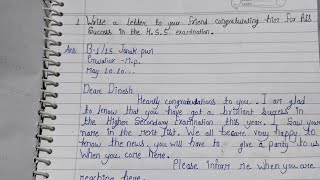 1. Write a letter to your friend congratulating him for his
success in the H.S.S. examination.
Ans. B-1/15. Janak puri
Gwalior - M.p.
May 10.20...
Dear Dinesh
Hearty congratulations to you. I am glad
to know that you have got a brilliant success in
the Higher Secondary Examination this year. I saw your
name in the merit list. We all became very happy to
know the news. you will have to give a party to us
When you come here.
Please inform me when you are
reaching here.